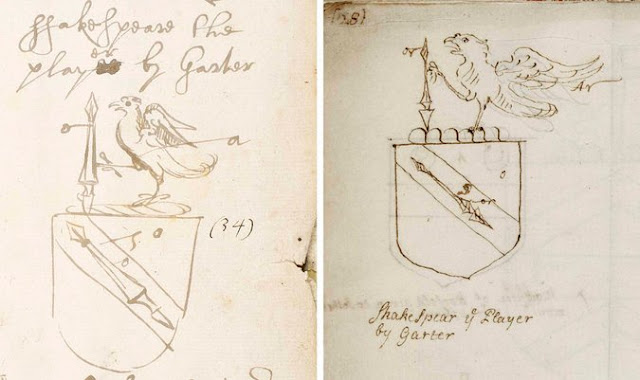 Shakespeare the
player by Garter
o
a
(34)
o
s
(28)
or
Ar
o
s
Shakespear ye Player
by Garter